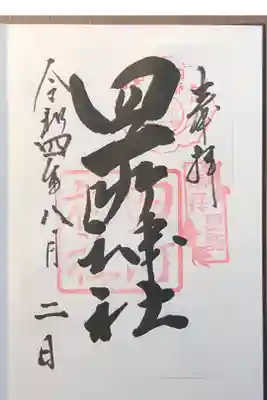 奉拝
四所神社
令和四年八月二日